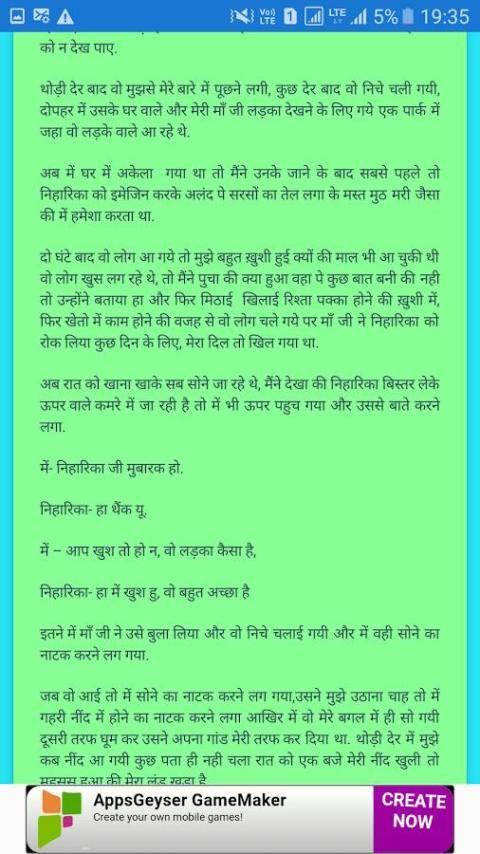 5% 19:35
को न देख पाए.
थोड़ी देर बाद वो मुझसे मेरे बारे में पूछने लगी, कुछ देर बाद वो निचे चली गयी,
दोपहर में उसके घर वाले और मेरी माँ जी लड़का देखने के लिए गये एक पार्क में
जहा वो लड़के वाले आ रहे थे.
अब में घर में अकेला गया था तो मैंने उनके जाने के बाद सबसे पहले तो
निहारिका को इमेजिन करके अलंद पे सरसों का तेल लगा के मस्त मुठ मरी जैसा
की में हमेशा करता था.
दो घंटे बाद वो लोग आ गये तो मुझे बहुत ख़ुशी हुई क्यों की माल भी आ चुकी थी
वो लोग खुस लग रहे थे, तो मैंने पुचा की क्या हुआ वहा पे कुछ बात बनी की नही
तो उन्होंने बताया हा और फिर मिठाई खिलाई रिश्ता पक्का होने की ख़ुशी में,
फिर खेतो में काम होने की वजह से वो लोग चले गये पर माँ जी ने निहारिका को
रोक लिया कुछ दिन के लिए, मेरा दिल तो खिल गया था.
अब रात को खाना खाके सब सोने जा रहे थे, मैंने देखा की निहारिका बिस्तर लेके
ऊपर वाले कमरे में जा रही है तो में भी ऊपर पहुच गया और उससे बाते करने
लगा.
में- निहारिका जी मुबारक हो.
निहारिका- हा थैंक यू.
में – आप खुश तो हो न, वो लड़का कैसा है,
निहारिका- हा में खुश हु, वो बहुत अच्छा है
इतने में माँ जी ने उसे बुला लिया और वो निचे चलाई गयी और में वही सोने का
नाटक करने लग गया.
जब वो आई तो में सोने का नाटक करने लग गया,उसने मुझे उठाना चाह तो में
गहरी नींद में होने का नाटक करने लगा आखिर में वो मेरे बगल में ही सो गयी
दूसरी तरफ घूम कर उसने अपना गांड मेरी तरफ कर दिया था. थोड़ी देर में मुझे
कब नींद आ गयी कुछ पता ही नही चला रात को एक बजे मेरी नींद खुली तो
महसूस हुआ की मेरा लंड खड़ा है
AppsGeyser GameMaker
Create your own mobile games!
CREATE
NOW